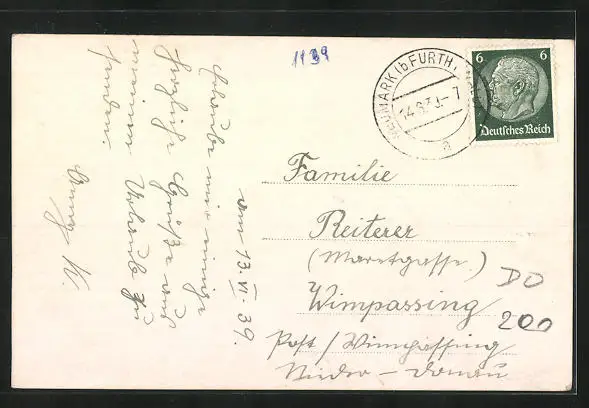 1139
NEUMARK (b FURTH
14.6.39.-7
a
6 6
Deutsches Reich
am 13. VI. 39.
Erlaube mir einige
herzliche Grüße aus
meinem Urlaub zu
senden.
K.
Familie
Reiterer
(Marktgasse.)
Wimpassing
Post / Wimpassing
Nieder-Donau
DO
200